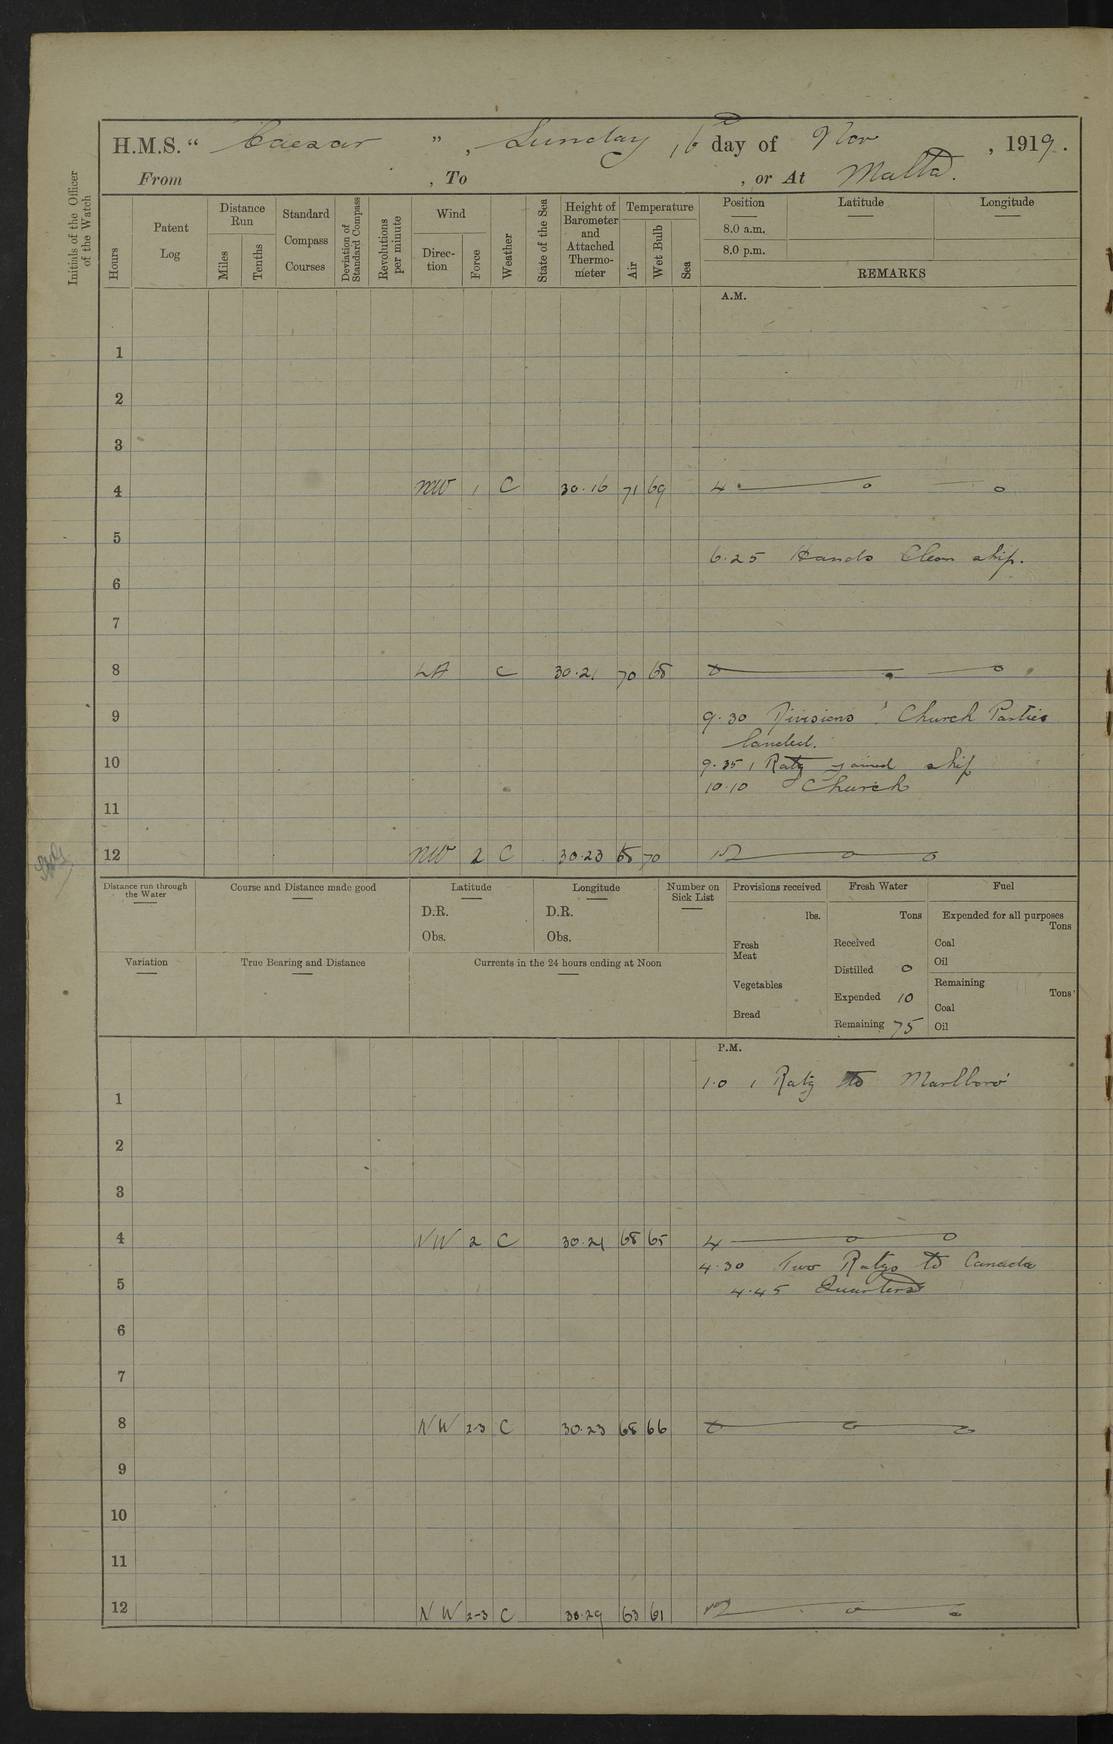 H.M.S. "Caesar", Sunday, 16th day of Nov, 1919.
From , To , or At Malta.
Initials of the Officer of the Watch
Hours
Patent Log
Distance Run
Miles
Tenths
Standard Compass Courses
Deviation of Standard Compass
Revolutions per minute
Wind
Direction
Force
Weather
State of the Sea
Height of Barometer and Attached Thermometer
Temperature
Air
Wet Bulb
Sea
Position Latitude Longitude
8.0 a.m.
8.0 p.m.
REMARKS
A.M.
1
2
3
4 NW 1 C 30.16 71 69 4
5
6.25 Hands Clean ship.
6
7
8 LA C 30.21 70 68 8
9 9.30 Divisions & Church Parties
landed.
10 9.35 1 Ratg joined ship
10.10 Church
11
12 NW 2 C 30.23 68 70 12
Distance run through the Water
Course and Distance made good
Latitude
D.R.
Obs.
Longitude
D.R.
Obs.
Number on Sick List
Variation
True Bearing and Distance
Currents in the 24 hours ending at Noon
Provisions received
lbs.
Fresh Meat
Vegetables
Bread
Fresh Water
Tons
Received
Distilled 0
Expended 10
Remaining 75
Fuel
Expended for all purposes
Tons
Coal
Oil
Remaining
Tons
Coal
Oil
P.M.
1.0 1 Ratg to Marlboro'
1
2
3
4 NW 2 C 30.21 68 65 4
4.30 Two Ratgs to Canada
5 4.45 Quarters
6
7
8 NW 2-3 C 30.23 68 66 8
9
10
11
12 NW 2-3 C 30.29 63 61 12